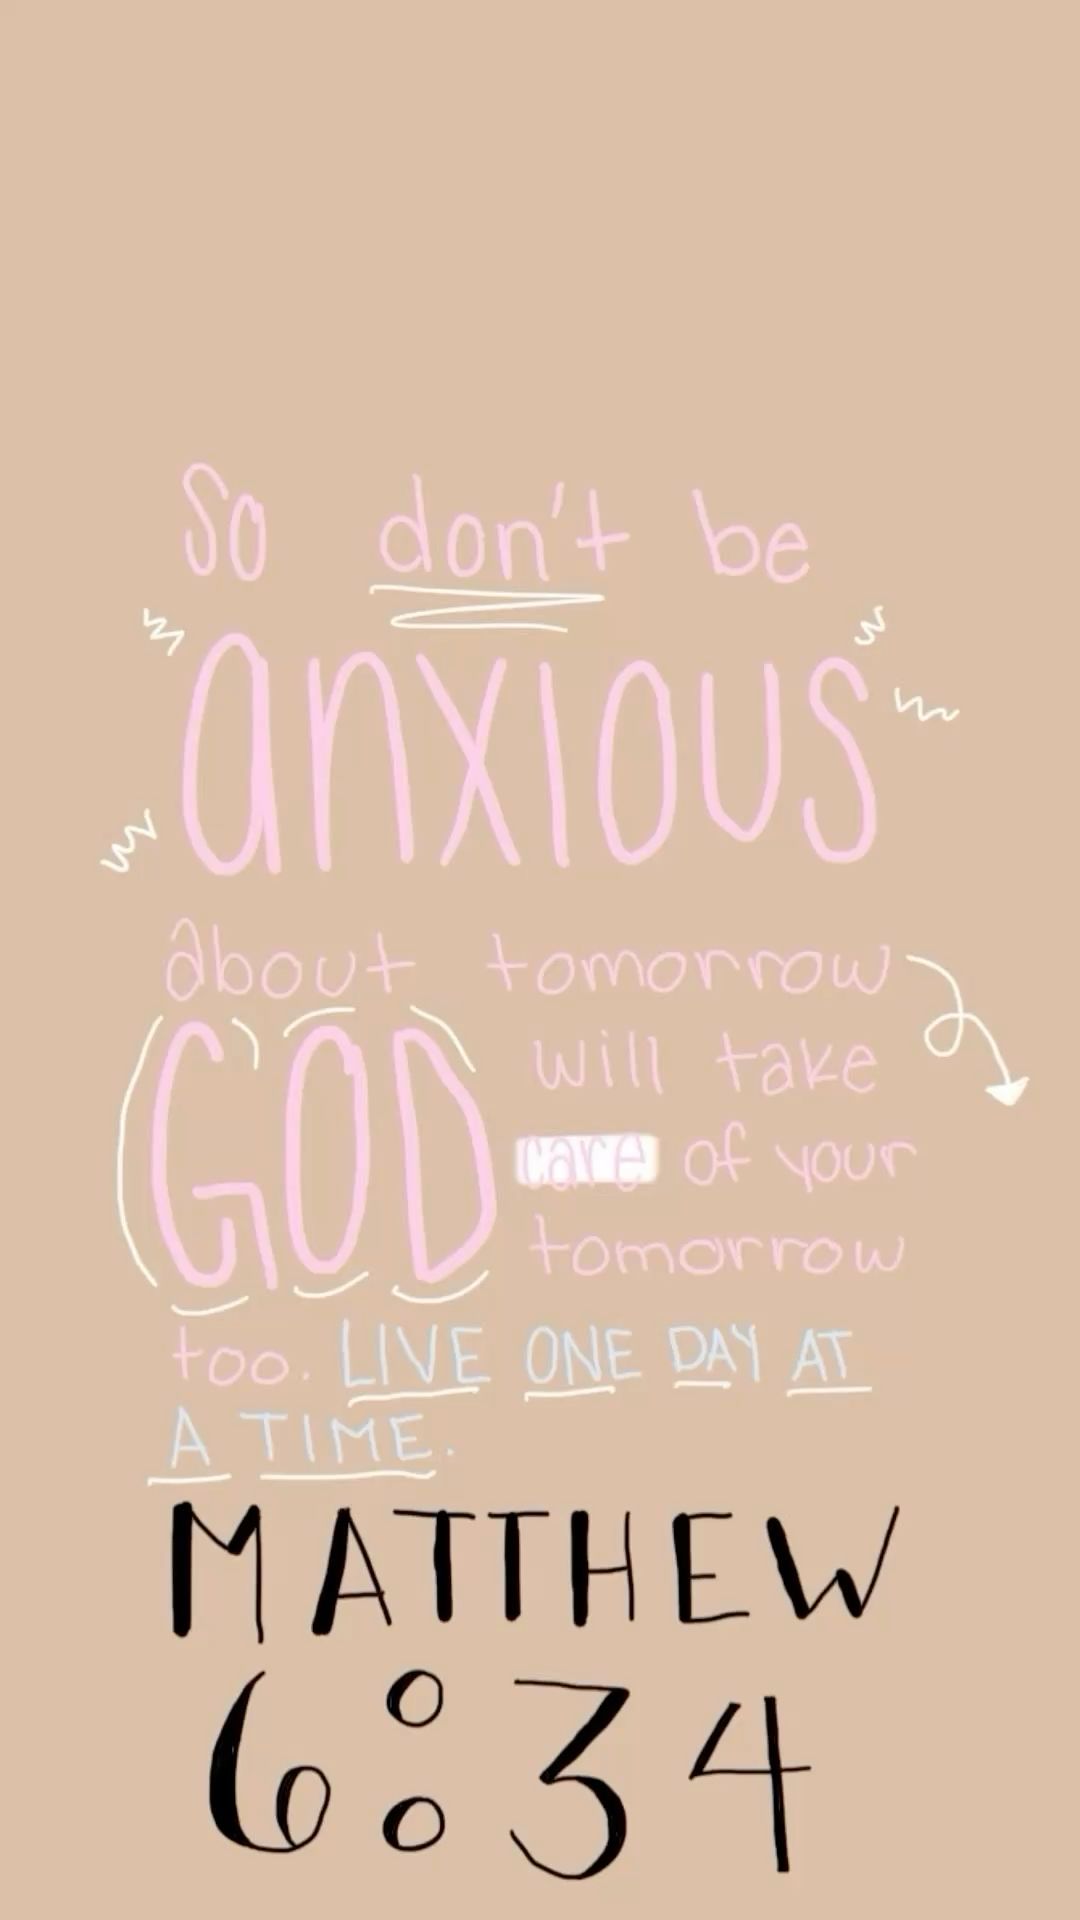 So don't be
anxious
about tomorrow
GOD will take
care of your
tomorrow
too. LIVE ONE DAY AT
A TIME.
MATTHEW
6:34